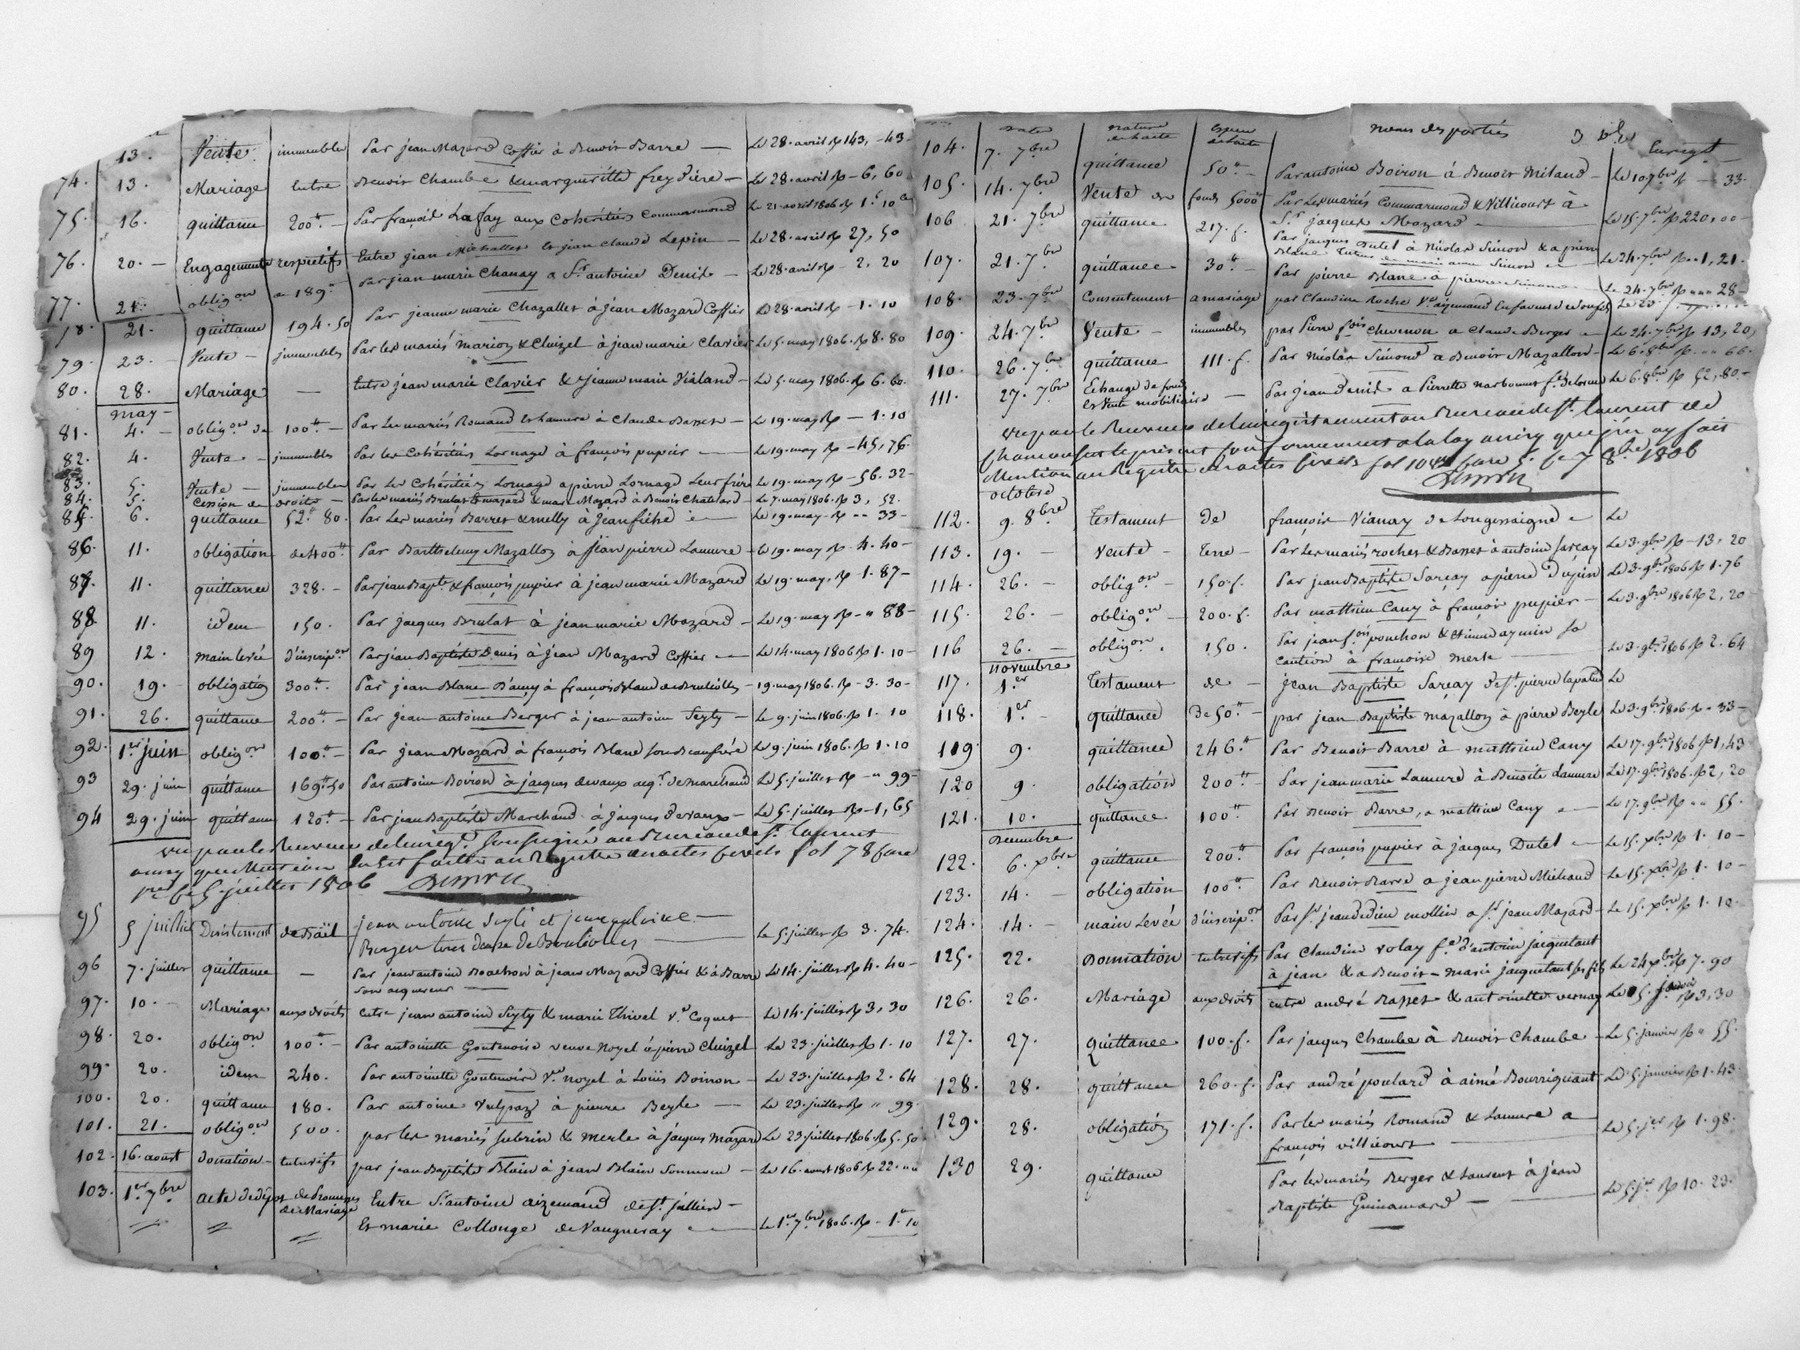 13. Vente immeubles Par jean Mazard Coffier à Benoit Barre — Le 28. avril Rp 143, - 43
74. 13. Mariage Entre Benoit Chambe & margueritte freydiere — Le 28. avril Rp - 6, 60
75. 16. quittance 200tt — Par françois Lafay aux Cohéritiers Commarmond Le 21. avril 1806. Rp 1. 10
76. 20. — Engagements respectifs Entre jean Michallet et jean Claude Lepin — Le 28. avril Rp 27, 50
77. 21. oblig.on 189 Par jean marie Chanay a Sr. antoine Denis — Le 28. avril Rp - 2. 20
78. 21. quittance 194. 50 Par jeanne marie Chazallet à jean Mazard Coffier Le 28. avril Rp - 1. 10
79. 23. — Vente — immeubles Par les mariés Marion & Cluizel à jean marie Clavier Le 5. may 1806. Rp 8. 80
80. 28. Mariage — Entre jean marie Clavier & jeanne marie Vialand — Le 5. may 1806. Rp 6. 60.
may —
81. 4. — oblig.on de 100tt — Par Les mariés Romand et Lamure à Claude Basset — Le 19. may Rp — 1. 10
82. 4. Vente — immeubles Par les Cohéritiers Lornage à françois pupier — Le 19. may Rp — 45, 76
83. 5. Vente — immeubles Par Les Cohéritiers Lornage a pierre Lornage Leur frère Le 19. may Rp — 56. 32 —
84. 5. Cession de droits — Par les mariés Brulas & mazard & mar. Mazard à Benoit Chatelard — Le 7. may 1806. Rp 3, 52.
85. 6. quittance 52tt 80. Par Les mariés Barret & melly à jean fiché — Le 19. may Rp „ „ 33 —
86. 11. obligation de 400tt Par Barthelemy Mazallon à jean pierre Lamure — Le 19. may Rp — 4. 40 —
87. 11. quittance 328. — Par jean Bapt. & françois pupier à jean marie Mazard Le 19. may. Rp - 1. 87 —
88 11. idem 150. Par jacques Brulat à jean marie Mazard — Le 19. may Rp — „ 88 —
89 12. main levée d'inscrip.on Par jean Baptiste Denis à jean Mazard Coffier — Le 14. may 1806 Rp 1. 10 —
90. 19. obligation 300tt. Par jean Blanc D'amy à françois Blanc de Brulliolles — 19. may 1806. Rp — 3. 30 —
91. 26. quittance 200tt — Par jean antoine Berger à jean antoine Seyty — Le 9. juin 1806. Rp 1. 10
92. 1er juin oblig.on 100tt — Par jean Mazard à françois Blanc son Beaufrère Le 9. juin 1806. Rp 1. 10
93 29. juin quittance 169tt 50 Par antoine Boiron à jacques devaux acq.r de marchand Le 5. juillet Rp — „ 99 —
94 29. juin quittance 120tt — Par jean Baptiste Marchand à jacques Devaux — Le 5. juillet Rp — 1, 65
vu par le Receveur de L'enreg.t Soussigné au Bureau de St. Laurent
ainsy que Mention En Est faitte au Registre des actes Civils fol 78
Le 5 juillet 1806
95 5 juillet Desistement de Bail jean antoine Seyti et jean antoine —
Berger tous deux de Brulliolles — Le 5. juillet Rp 3. 74.
96 7. juillet quittance — Par jean antoine Bonchon à jean Mazard Coffier & à Barre Le 14. juillet Rp 4. 40 —
Son acquereur —
97. 10. — Mariage aux droits entre jean antoine Seyty & marie Thivel v.e Coquet — Le 14. juillet Rp 3, 30
98. 20. oblig.on 100tt — Par antoinette Goutenoire veuve Noyel à pierre Cluizel Le 23. juillet Rp 1. 10
99. 20. idem 240. Par antoinette Goutenoire v.e noyel à Louis Boiron — Le 23. juillet Rp 2. 64
100. 20. quittance 180. Par antoine Vulpaz à pierre Beyle — Le 23. juillet Rp „ 99.
101. 21. oblig.on 500. par les mariés Subrin & merle à jacques mazard Le 23. juillet 1806. Rp 5. 50
102. 16. aoust donation — entre vifs par jean Baptiste Blain à jean Blain Son neveu — Le 16. aoust 1806 Rp 22. „
103. 1er 7bre acte de depot de Promesses de Mariage Entre Sr. antoine aizemand de St. jullien —
Et marie Collonge de Vaugneray — Le 1er 7bre 1806. Rp — 1tt 10
dates nature des actes especes des actes noms des parties Enregt
104. 7. 7bre quittance 50tt — Par antoine Boiron à Benoit Miland — Le 10 7bre Rp — 33 —
105. 14. 7bre Vente de fonds 5000tt Par Les mariés Commarmond & Villicourt à
Sr. jacques Mazard — Le 15. 7bre Rp 220, „ —
106 21. 7bre quittance 217. f. Par jacques Dutel à Nicolas Simon & a pierre
Blanc — Le 24. 7bre Rp „ 1, 21.
107. 21. 7bre quittance 30tt — Par pierre Blanc à pierre Simon — Le 24. 7bre Rp „ 28 —
108. 23. 7bre Consentement a mariage par Claudine Roche v.e aymand En faveur de son fils Le 23
109. 24. 7bre Vente — immeubles par Pierre f.ois Chevenon a Claude Berger — Le 24. 7bre Rp 13, 20,
110. 26. 7bre quittance 111. f. Par Nicolas Simond a Benoit Mazallon — Le 6. 8bre Rp — „ 66 —
111. 27. 7bre Echange de fonds et Vente mobiliaire — Par jean Denis a Pierrette narbonnet f.e Delorme Le 6. 8bre Rp 52, 80. —
vu par le Receveur de L'enregistrement au Bureau de St. Laurent de
Chamousset le présent conformement a la loy ainsy que j'en ay fait
Mention au Registre des actes Civils fol 104 Case 5. Le 7 8bre 1806
octobre
112. 9. 8bre Testament de françois Vianay de Longessaigne — Le
113. 19. — Vente — terre — Par Les mariés rochet & Basset à antoine Sarcay Le 3. 9bre Rp — 13, 20
114. 26. — oblig.on — 150. f. Par jean Baptiste Sarcay a pierre Dupin Le 3. 9bre 1806 Rp 1. 76
115. 26. — oblig.on — 200. f. Par mathieu Cany à françois pupier — Le 3. 9bre 1806 Rp 2, 20 —
116 26. — oblig.on. 150. Par jean f.ois pouchon & Etienne aymin sa
caution à françoise merle — Le 3. 9bre 1806 Rp 2. 64
novembre
117. 1.er Testament de — jean Baptiste Sarcay de St. pierre lapalud Le
118. 1.er — quittance de 50tt — par jean Baptiste mazallon à pierre Beyle Le 3. 9bre 1806 Rp „ 33 —
119 9. quittance 246tt Par Benoit Barre à mathieu Cany Le 17. 9bre 1806 Rp 1, 43
120 9. obligation 200tt — Par jean marie Lamure à Benoite Lamure Le 17. 9bre 1806. Rp 2, 20
121. 10. quittance 100tt Par Benoit Barre, a mathieu Cany — Le 17. 9bre Rp „ „ 55.
Decembre
122. 6. xbre quittance 200tt Par françois pupier à jacques Dutel — Le 15. xbre Rp 1. 10 —
123. 14. — obligation 100tt. Par Benoit Barre a jean pierre Michaud Le 15. xbre Rp 1. 10 —
124. 14. — main Levée d'inscrip.on Par Sr. jean didier mollin a Sr. jean Mazard — Le 15. xbre Rp 1. 10 —
125. 22. Donnation entre vifs Par Claudine volay f.e d'antoine jacquetant
à jean & a Benoit-marie jacquetant ses fils Le 24 xbre Rp 7. 90
126. 26. Mariage aux droits entre andré Basset & antoinette vernay Le 5. janvier Rp 3, 30
127. 27. quittance 100. f. Par jacques Chambe à Benoit Chambe — Le 5. janvier Rp „ 55.
128. 28. quittance 260. f. Par andré poulard à aimé Bourriquant Le 5. janvier Rp 1. 43.
129. 28. obligation 171. f. Par les mariés Romand & Lamure a
françois villicourt — Le 5. jer Rp 1. 98.
130 29. quittance Par les mariés Berger & Laurent à jean
Baptiste Guinamard — Le 5. jer Rp 10. 23.